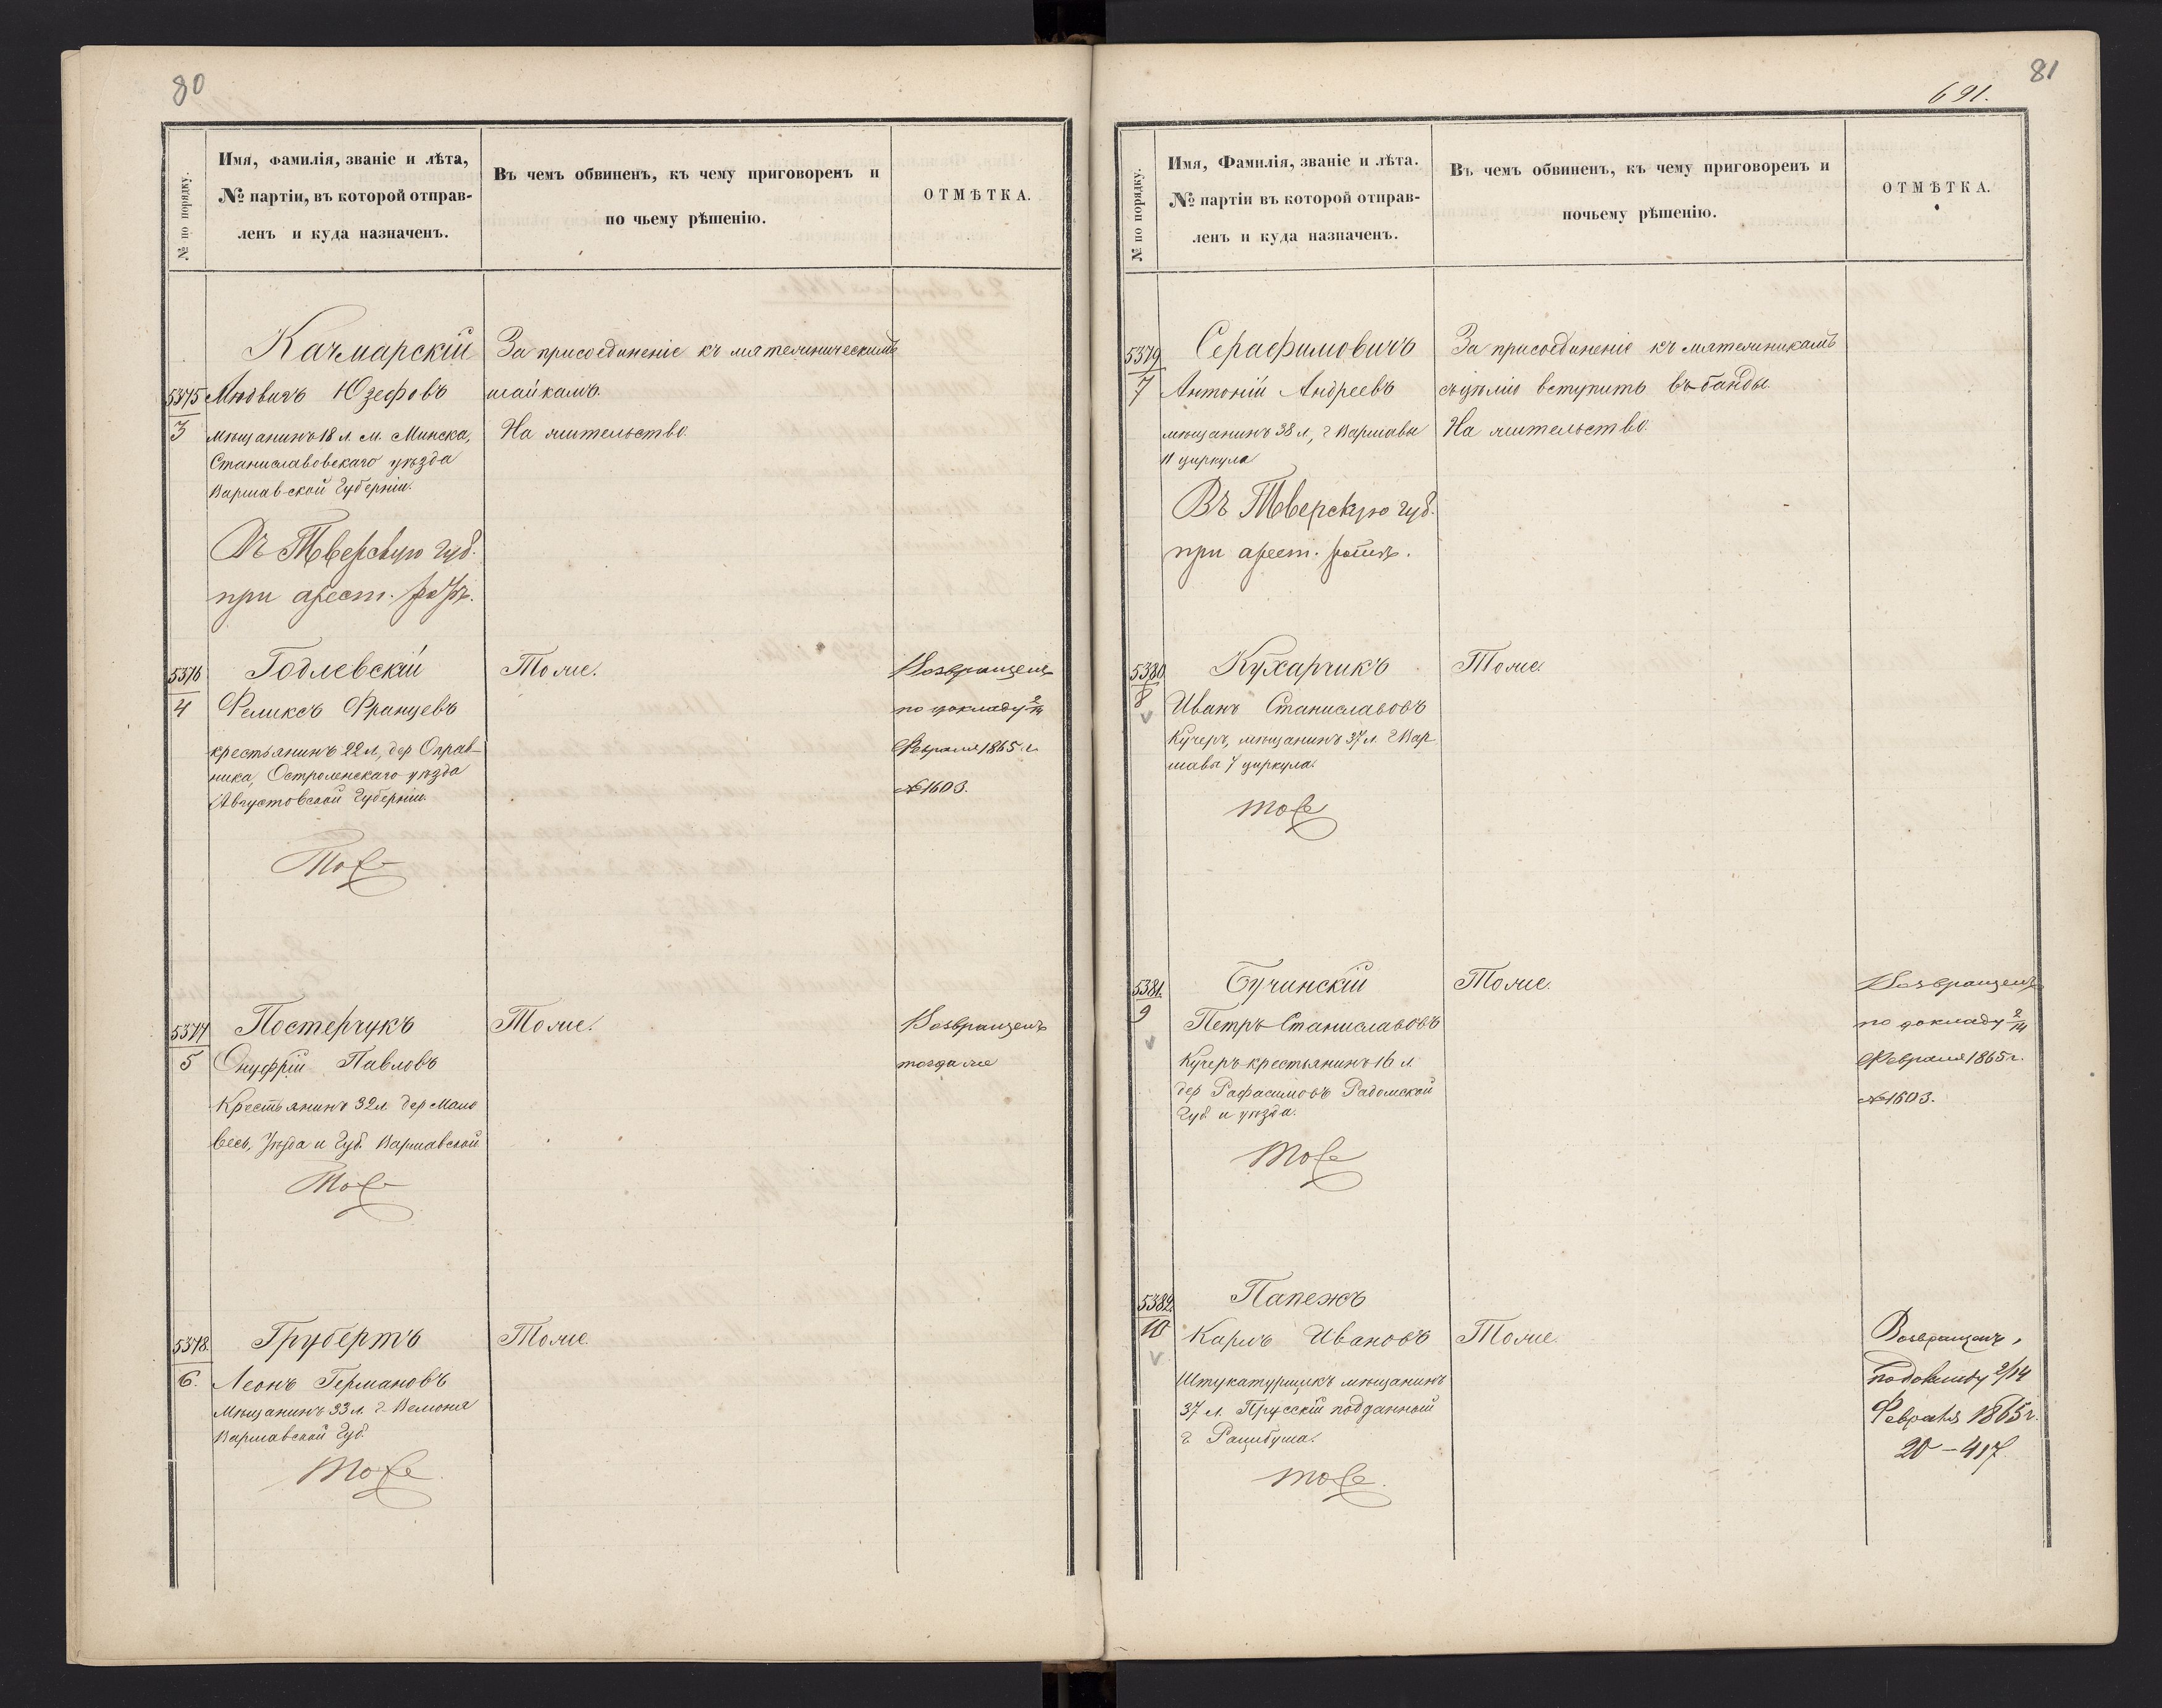 80
№ по порядку.
Имя, Фамилія, званіе и лѣта,
№ партіи, въ которой отправ-
ленъ и куда назначенъ.
Въ чемъ обвиненъ, къ чему приговоренъ и
по чьему рѣшенію.
ОТМѢТКА.
5375
3
Качмарскій
Людвигъ Юзефовъ
мѣщанинъ 18 л. м. Минска,
Станиславовскаго уѣзда
Варшавской Губерніи.
Въ Тверскую губ.
при арест.
За присоединеніе къ мятежническимъ
шайкамъ.
На жительство.
5376
4
Годлевскій
Феликсъ Францевъ
крестьянинъ 22 л, дер Оправ-
ника, Остроленскаго уѣзда
Августовской Губерніи.
Тоже
Тоже.
Возвращенъ
по докладу 2/14
Февраля 1865 г.
№ 1603.
5377
5
Постерчукъ
Онуфрій Павловъ
Крестьянинъ 32 л дер Мало
весь, Уѣзда и Губ. Варшавской
Тоже
Тоже.
Возвращенъ
тогда же
5378.
6.
Грубертъ
Леонъ Германовъ
Мѣщанинъ 33 л. г. Велюня
Варшавской Губ.
Тоже.
Тоже.
81
691.
№ по порядку.
Имя, Фамилія, званіе и лѣта.
№ партіи въ которой отправ-
ленъ и куда назначенъ.
Въ чемъ обвиненъ, къ чему приговоренъ и
почьему рѣшенію.
ОТМѢТКА.
5379
7
Серафимовичъ
Антоній Андреевъ
мѣщанинъ 38 л, г Варшавы
11 циркула
Въ Тверскую губ.
при арест. ротѣ.
За присоединеніе къ мятежникамъ
съ цѣлію вступить въ банды.
На жительство.
5380
8
Кухарчикъ
Иванъ Станиславовъ
Кучеръ, мѣщанинъ 37 л. г Вар
шавы 7 циркула.
тоже
Тоже.
5381.
9
Бучинскій
Петръ Станиславовъ
Кучеръ крестьянинъ 16 л.
дер Рафасимовъ Радомской
Губ. и уѣзда.
тоже
Тоже.
Возвращенъ
по докладу 2/14
Февраля 1865 г.
№ 1603.
5382.
10
Папежъ
Карлъ Ивановъ
Штукатурщикъ мѣщанинъ
37 л. Прусскій подданный
г Рацибужа.
тоже.
Тоже.
Возвращенъ,
по докладу 2/14
Февраля 1865 г.
20 – 417